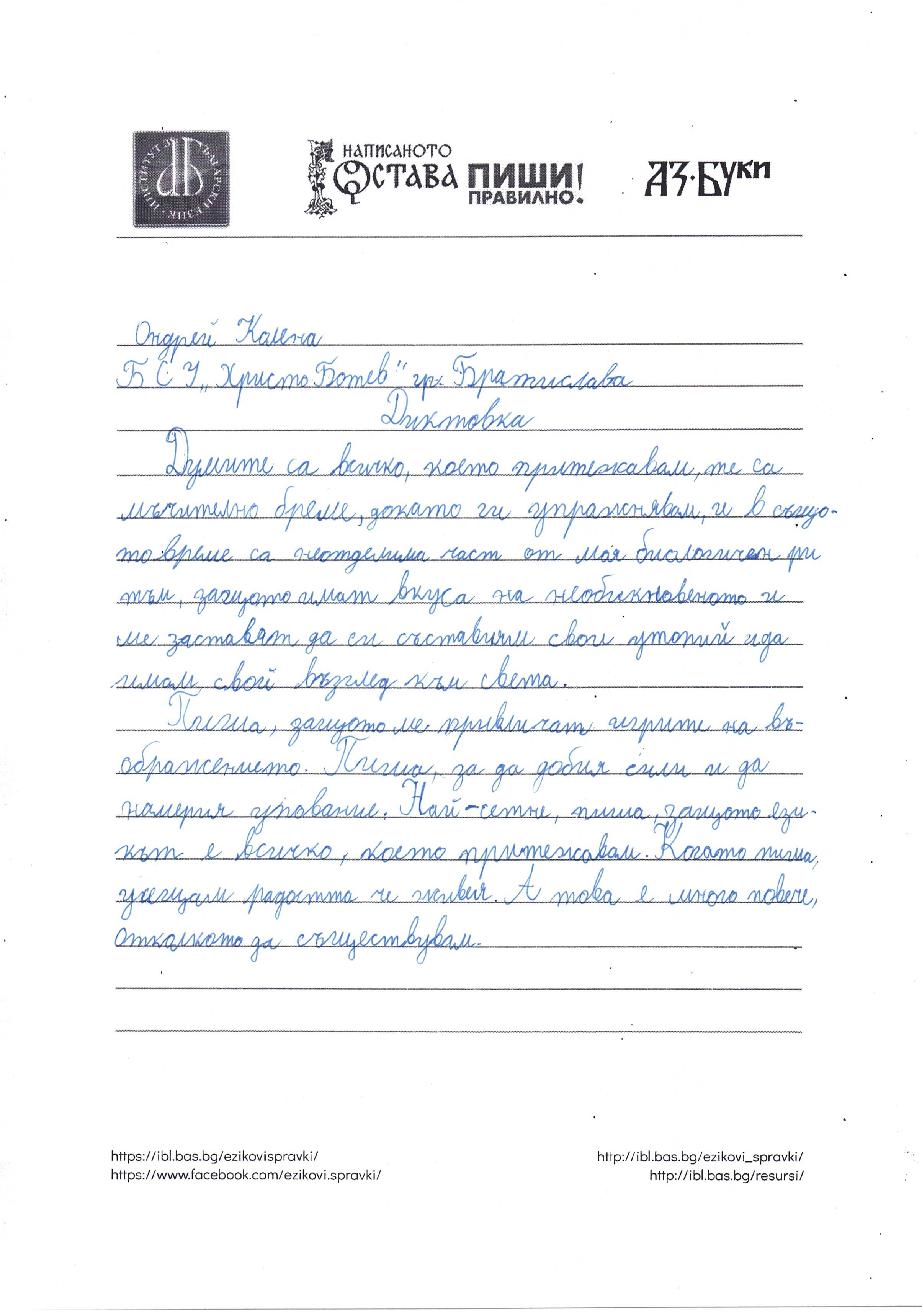 ИНСТИТУТ ЗА БЪЛГАРСКИ ЕЗИК
НАПИСАНОТО
ОСТАВА ПИШИ!
ПРАВИЛНО.
АЗ·БУКИ
Ондрей Калена
Б С У „Христо Ботев" гр. Братислава
Диктовка
Думите са всичко, което притежавам, те са
мъчително бреме, докато ги упражнявам, и в също-
то време са неотделима част от моя биологичен ри
тъм, защото имат вкуса на необикновеното и
ме заставят да си съставим свои утопий и да
имам свой възглед към света.
Пиша, защото ме привличат игрите на въ-
ображението. Пиша, за да добия сили и да
намеря упование. Най-сетне, пиша, защото ези-
кът е всичко, което притежавам. Когато пиша,
усещам радостта че живея. А това е много повече,
отколкото да съществувам.
https://ibl.bas.bg/ezikovispravki/
http://ibl.bas.bg/ezikovi_spravki/
https://www.facebook.com/ezikovi.spravki/
http://ibl.bas.bg/resursi/